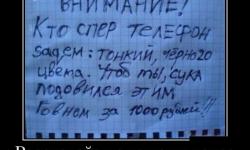 ВНИМАНИЕ!
Кто спер телефон
зadem: тонкий, чёрного
цвета. Чтоб ты, сука
подовился этим
Говном за 1000 рублей!!!